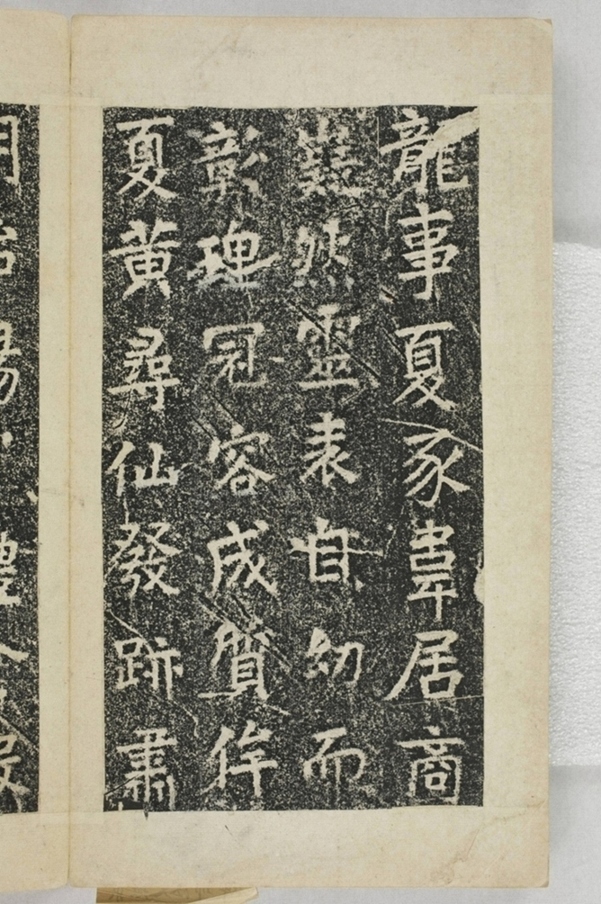 龍事夏豕韋居商
然靈表幼而
彰理冠容成質侔
夏黃尋仙發跡肅